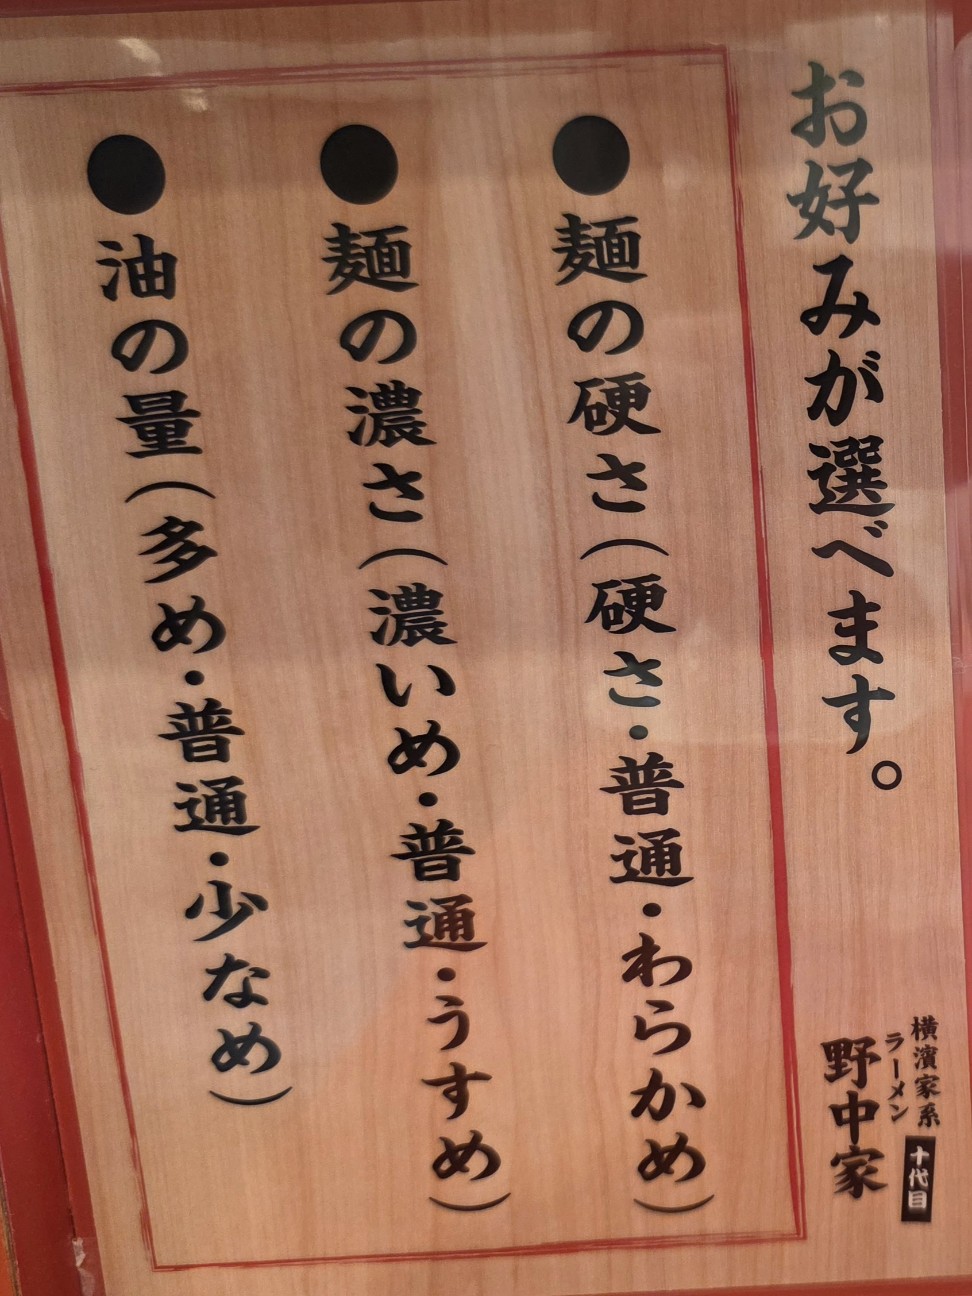 お好みが選べます。
●麺の硬さ（硬さ・普通・わらかめ）
●麺の濃さ（濃いめ・普通・うすめ）
●油の量（多め・普通・少なめ）
横濱家系
ラーメン
野中家
十代目